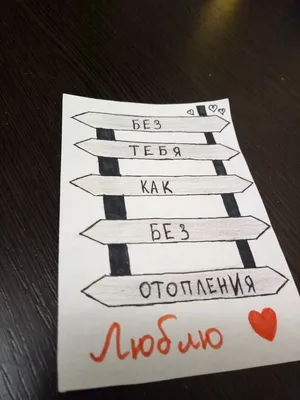 БЕЗ
ТЕБЯ
КАК
БЕЗ
ОТОПЛЕНИЯ
Люблю